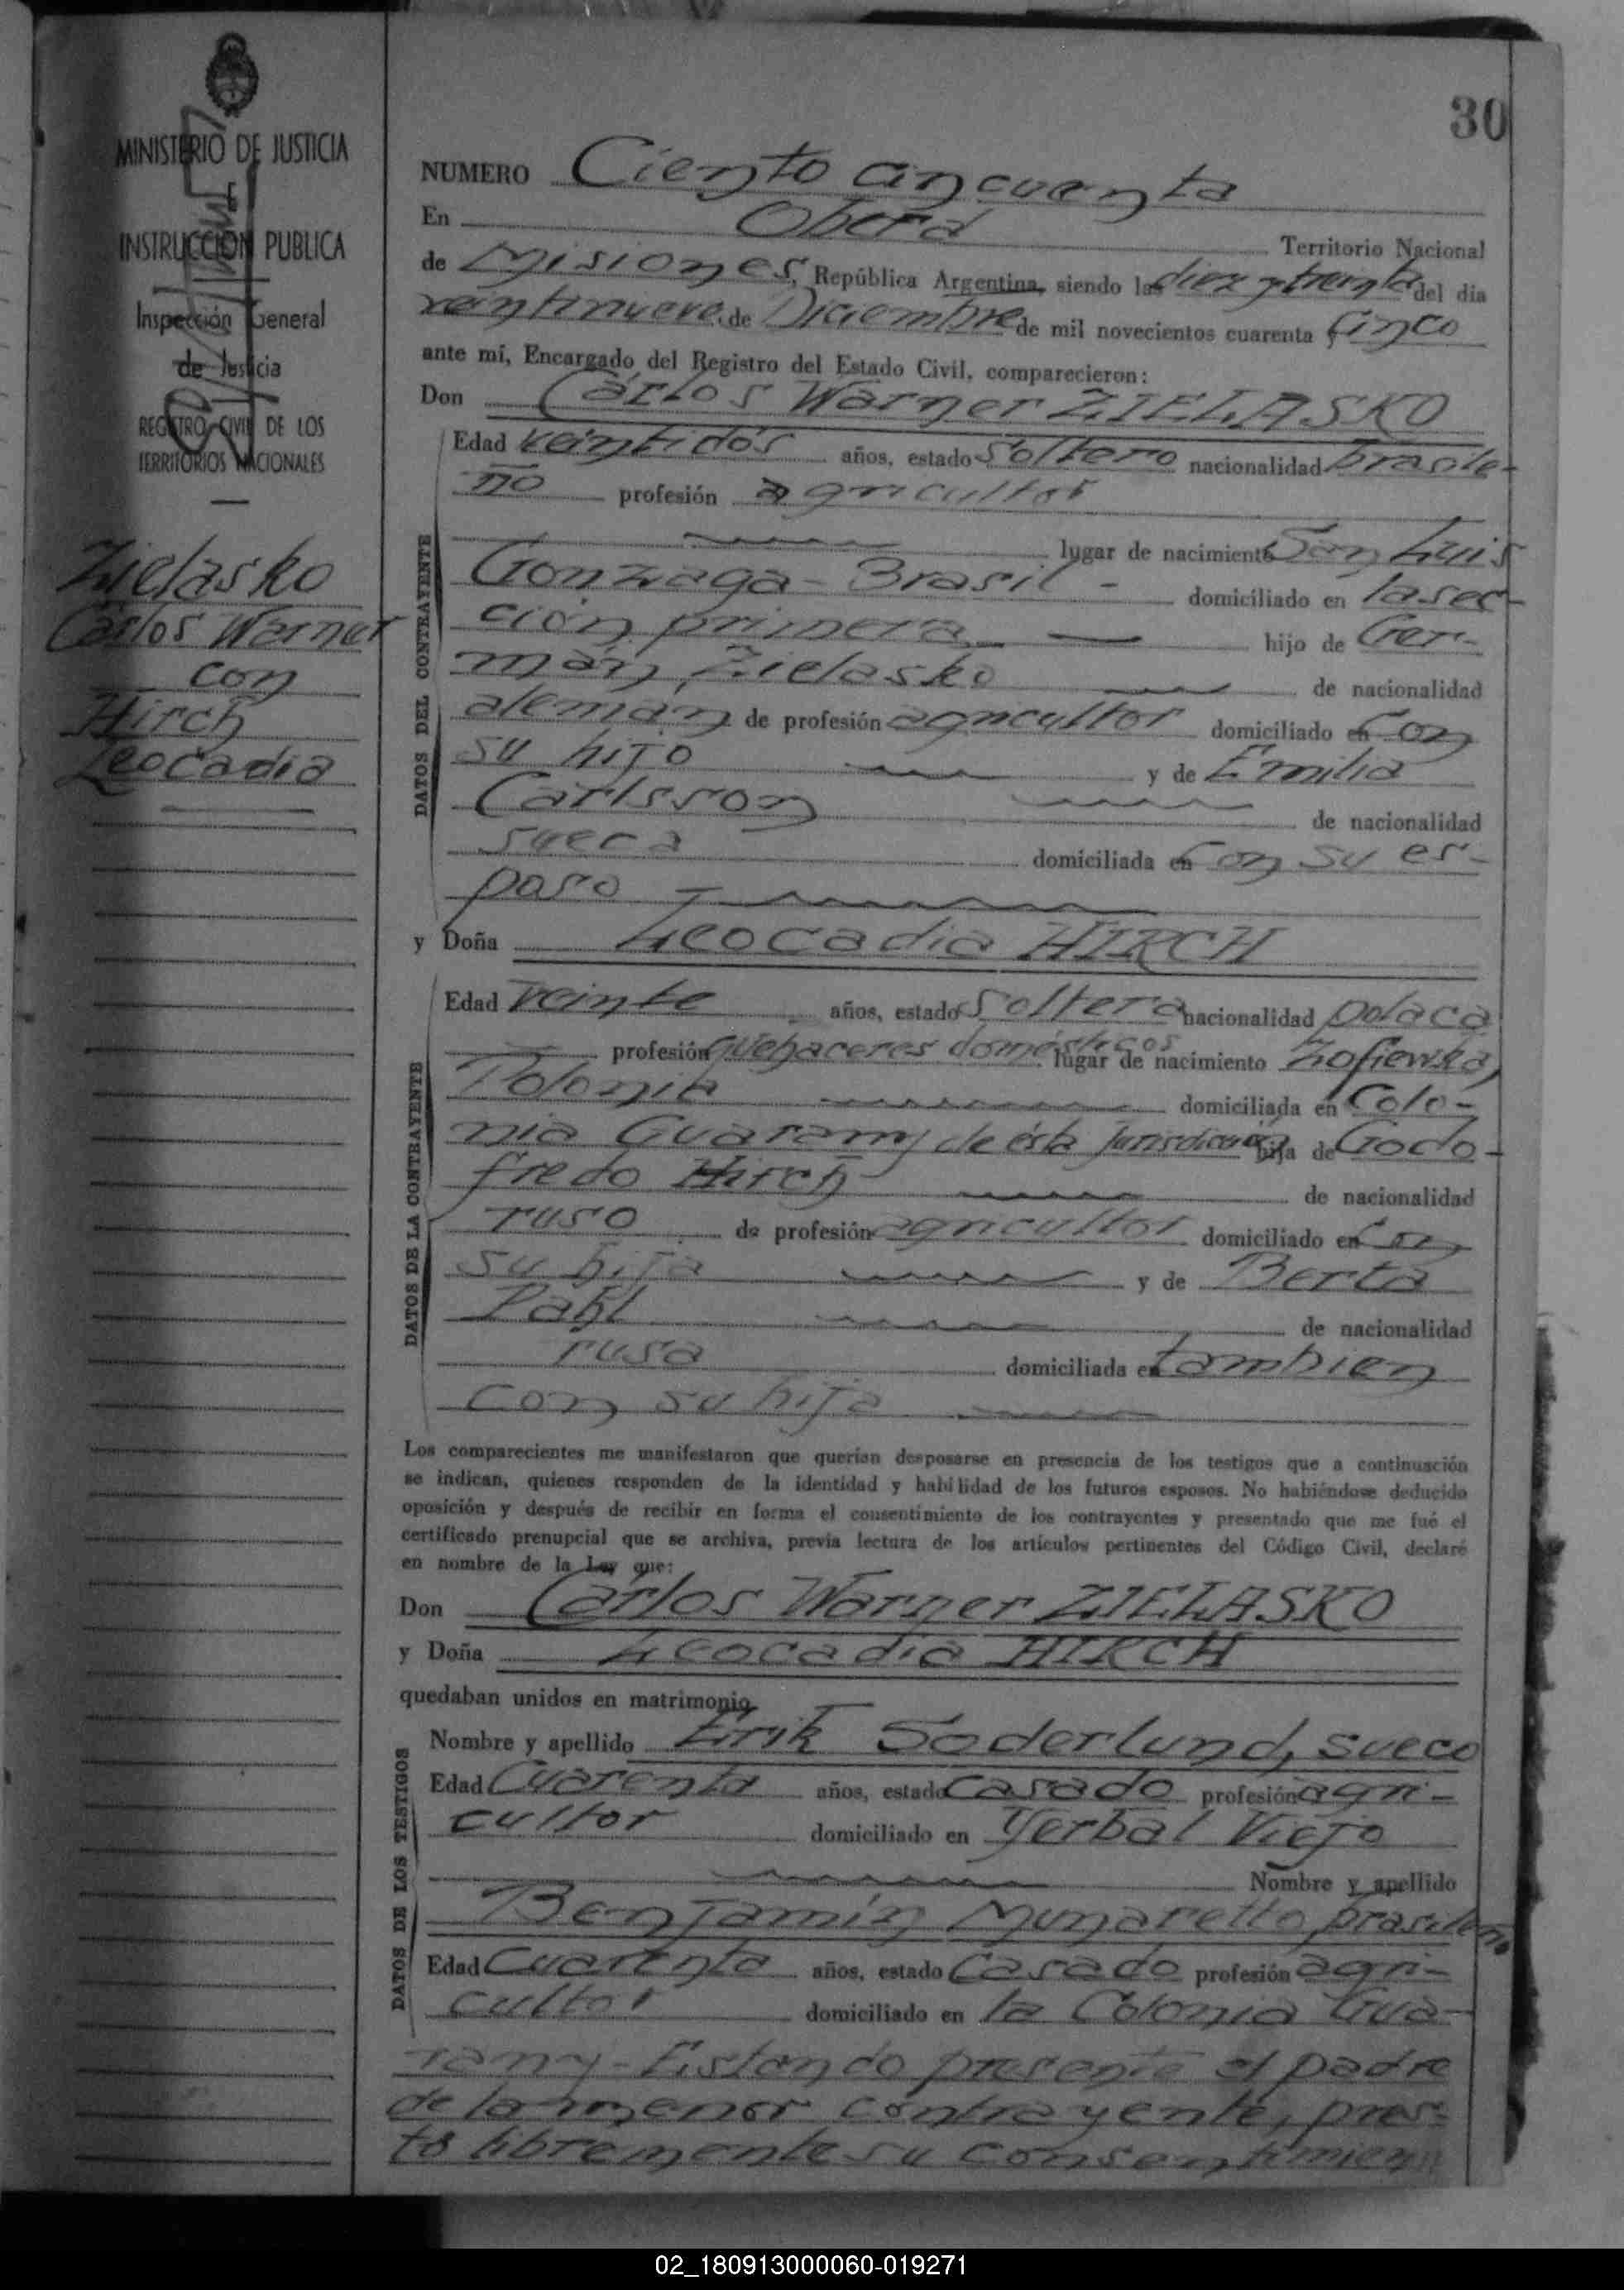 30
MINISTERIO DE JUSTICIA
E
INSTRUCCION PUBLICA
Inspección General
de Justicia
REGISTRO CIVIL DE LOS
TERRITORIOS NACIONALES
Zielasko
Cárlos Warner
con
Hirch
Leocadia
NUMERO Ciento cincuenta
En Oberá Territorio Nacional
de Misiones, República Argentina, siendo las diez y treinta del dia
veintinueve de Diciembre de mil novecientos cuarenta y cinco
ante mí, Encargado del Registro del Estado Civil, comparecieron:
Don Cárlos Warner ZIELASKO
DATOS DEL CONTRAYENTE
Edad veintidós años, estado soltero nacionalidad brasile-
ño profesión agricultor
lugar de nacimiento San Luis
Gonzaga - Brasil - domiciliado en la sec-
ción primera hijo de Ger-
mán Zielasko de nacionalidad
alemán de profesión agricultor domiciliado en con
su hijo y de Emilia
Carlsson de nacionalidad
sueca domiciliada en con su es-
poso
y Doña Leocadia HIRCH
DATOS DE LA CONTRAYENTE
Edad veinte años, estado soltera nacionalidad polaca
profesión quehaceres domésticos lugar de nacimiento Zofiewka,
Polonia domiciliada en Colo-
nia Guarany de ésta jurisdicción hija de Godo-
fredo Hirch de nacionalidad
ruso de profesión agricultor domiciliado en con
su hija y de Berta
Pahl de nacionalidad
rusa domiciliada en tambien
con su hija
Los comparecientes me manifestaron que querían desposarse en presencia de los testigos que a continuación
se indican, quienes responden de la identidad y habilidad de los futuros esposos. No habiéndose deducido
oposición y después de recibir en forma el consentimiento de los contrayentes y presentado que me fué el
certificado prenupcial que se archiva, previa lectura de los artículos pertinentes del Código Civil, declaré
en nombre de la Ley que:
Don Cárlos Warner ZIELASKO
y Doña Leocadia HIRCH
quedaban unidos en matrimonio
DATOS DE LOS TESTIGOS
Nombre y apellido Erik Soderlund, sueco
Edad Cuarenta años, estado casado profesión agri-
cultor domiciliado en Yerbal Viejo
Nombre y apellido
Benjamín Munaretto, brasileño
Edad Cuarenta años, estado casado profesión agri-
cultor domiciliado en la Colonia Gua-
rany - Estando presente el padre
de la menor contrayente, pres-
tó libremente su consentimien
02_180913000060-019271